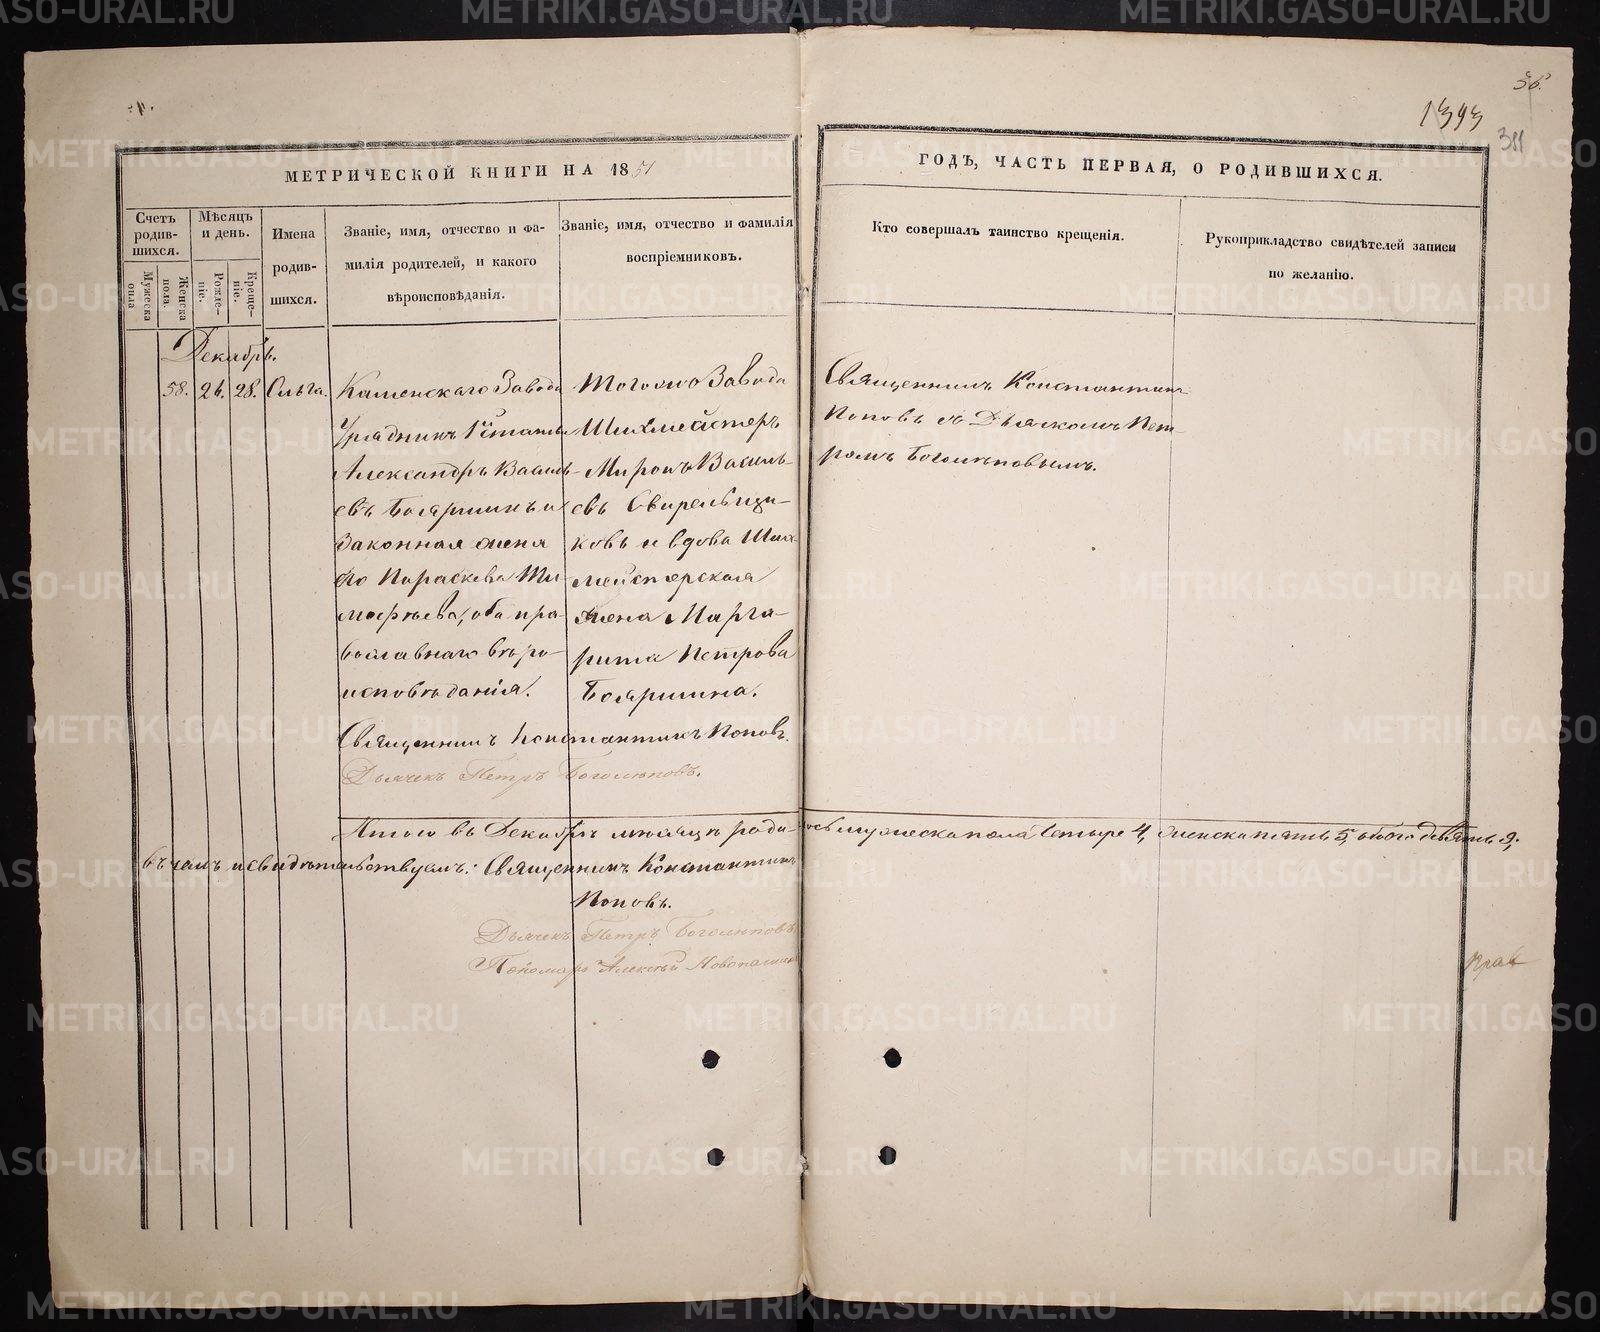 36.
1393
311
МЕТРИЧЕСКОЙ КНИГИ НА 1851
ГОДЪ, ЧАСТЬ ПЕРВАЯ, О РОДИВШИХСЯ.
Счетъ родив-шихся.
Мужеска пола
Женска пола.
Мѣсяцъ и день.
Рожде-ніе.
Креще-ніе.
Имена
родив-
шихся.
Званіе, имя, отчество и фа-
милія родителей, и какого
вѣроисповѣданія.
Званіе, имя, отчество и фамилія
воспріемниковъ.
Кто совершалъ таинство крещенія.
Рукоприкладство свидѣтелей записи
по желанію.
Декабрь.
58. 26. 28. Ольга.
Каменскаго Завода
Урядникъ 1й статьи
Александръ Василь-
евъ Бояршинъ и
законная жена
его Параскева Ти-
мофѣева, оба пра-
вославнаго вѣро-
исповѣданія.
Тогоже Завода
Шихмейстеръ
Миронъ Василь-
евъ Свирельщи-
ковъ и вдова Ших-
мейстерская
жена Марга-
рита Петрова
Бояршина.
Священникъ Константинъ
Поповъ съ Дьячкомъ Пет-
ромъ Боголѣповымъ.
Священникъ Константинъ Поповъ.
Дьячекъ Петръ Боголѣповъ.
Итого въ Декабрѣ мѣсяцѣ роди-лось мужеска пола четыре 4, женска пять 5, обоего девять 9.
въ чемъ и свидѣтельствуемъ: Священникъ Константинъ
Поповъ.
Дьячекъ Петръ Боголѣповъ
Пономарь Алексѣй Новопашинъ
METRIKI.GASO-URAL.RU